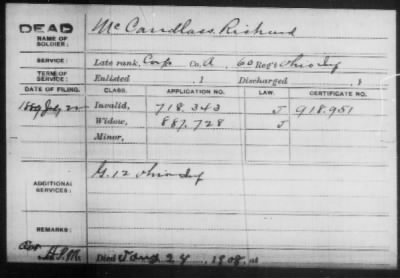 DEAD
NAME OF SOLDIER: McCandlass, Richard
SERVICE: Late rank, Corp Co. A, 60 Reg't Ohio Inf
TERM OF SERVICE: Enlisted , 1 Discharged , 1
DATE OF FILING. CLASS. APPLICATION NO. LAW. CERTIFICATE NO.
1889 July 22 Invalid, 718.343 J 918.951
Widow, 887.728 J
Minor,
ADDITIONAL SERVICES: G. 12 Ohio Inf
REMARKS:
Died 24 1908